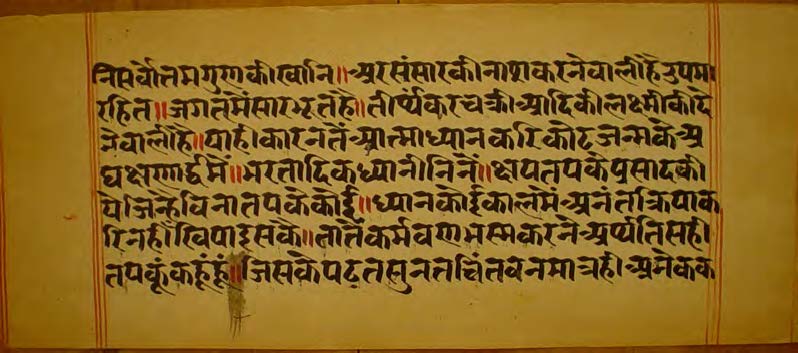 निसर्वोतमगुणकीखानि॥अरसंसारकीनाशकरनेवालीहैउपमा
रहित॥जगतमैंसारभूतहै॥तीर्थंकरचक्रीआदिकीलक्ष्मीकीदे
नेवालीहै॥याहीकारनतैंआत्माध्यानकरिकोटजन्मकेअ
घक्षणार्द्धमैं॥भरतादिकध्यानीनिनैं॥क्षपतपकेप्रसादकी
येजिन्हैविनातपकेकोई॥ध्यानकोईकालमैंअनंतक्रिपाक
रिनहीषिपाइसकै॥तातैंकर्मवणभस्मकरनेअर्थतिसही
तपकूंकहूंहूं॥जिसकेपढतसुनतचिंतवनमात्रहीअनेकक